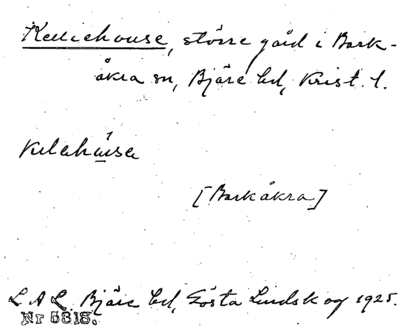 Kelliehouse, större gård i Bark-
åkra sn, Bjäre hd, Krist. l.
[Barkåkra]
L A L Bjäre hd, Gösta Lindskog 1925.
Nr 5318.